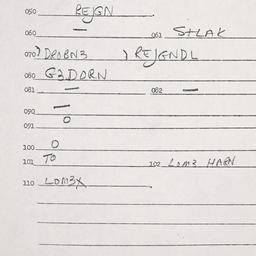 050 REJGN
060 — 061 STLAK
070 ) DROBN3 ) REJGNDL
080 G3DORN
081 — 082 —
090 —
091 O
100 O
101 TO 102 LOM3 HARN
110 LOM3X